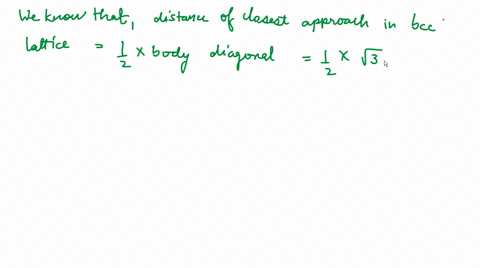 We know that, distance of closest approach in bcc
lattice = 1/2 × body diagonal = 1/2 × √3